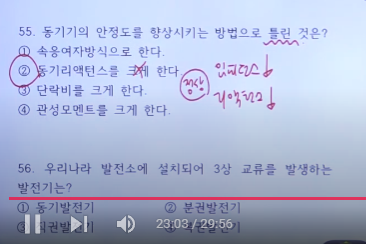 55. 동기기의 안정도를 향상시키는 방법으로 틀린 것은?
① 속응여자방식으로 한다.
② 동기리액턴스를 크게 한다
정상
임피던스↓
리액턴스↓
③ 단락비를 크게 한다.
④ 관성모멘트를 크게 한다.
56. 우리나라 발전소에 설치되어 3상 교류를 발생하는
발전기는?
① 동기발전기 ② 분권발전기
23:03 / 29:56